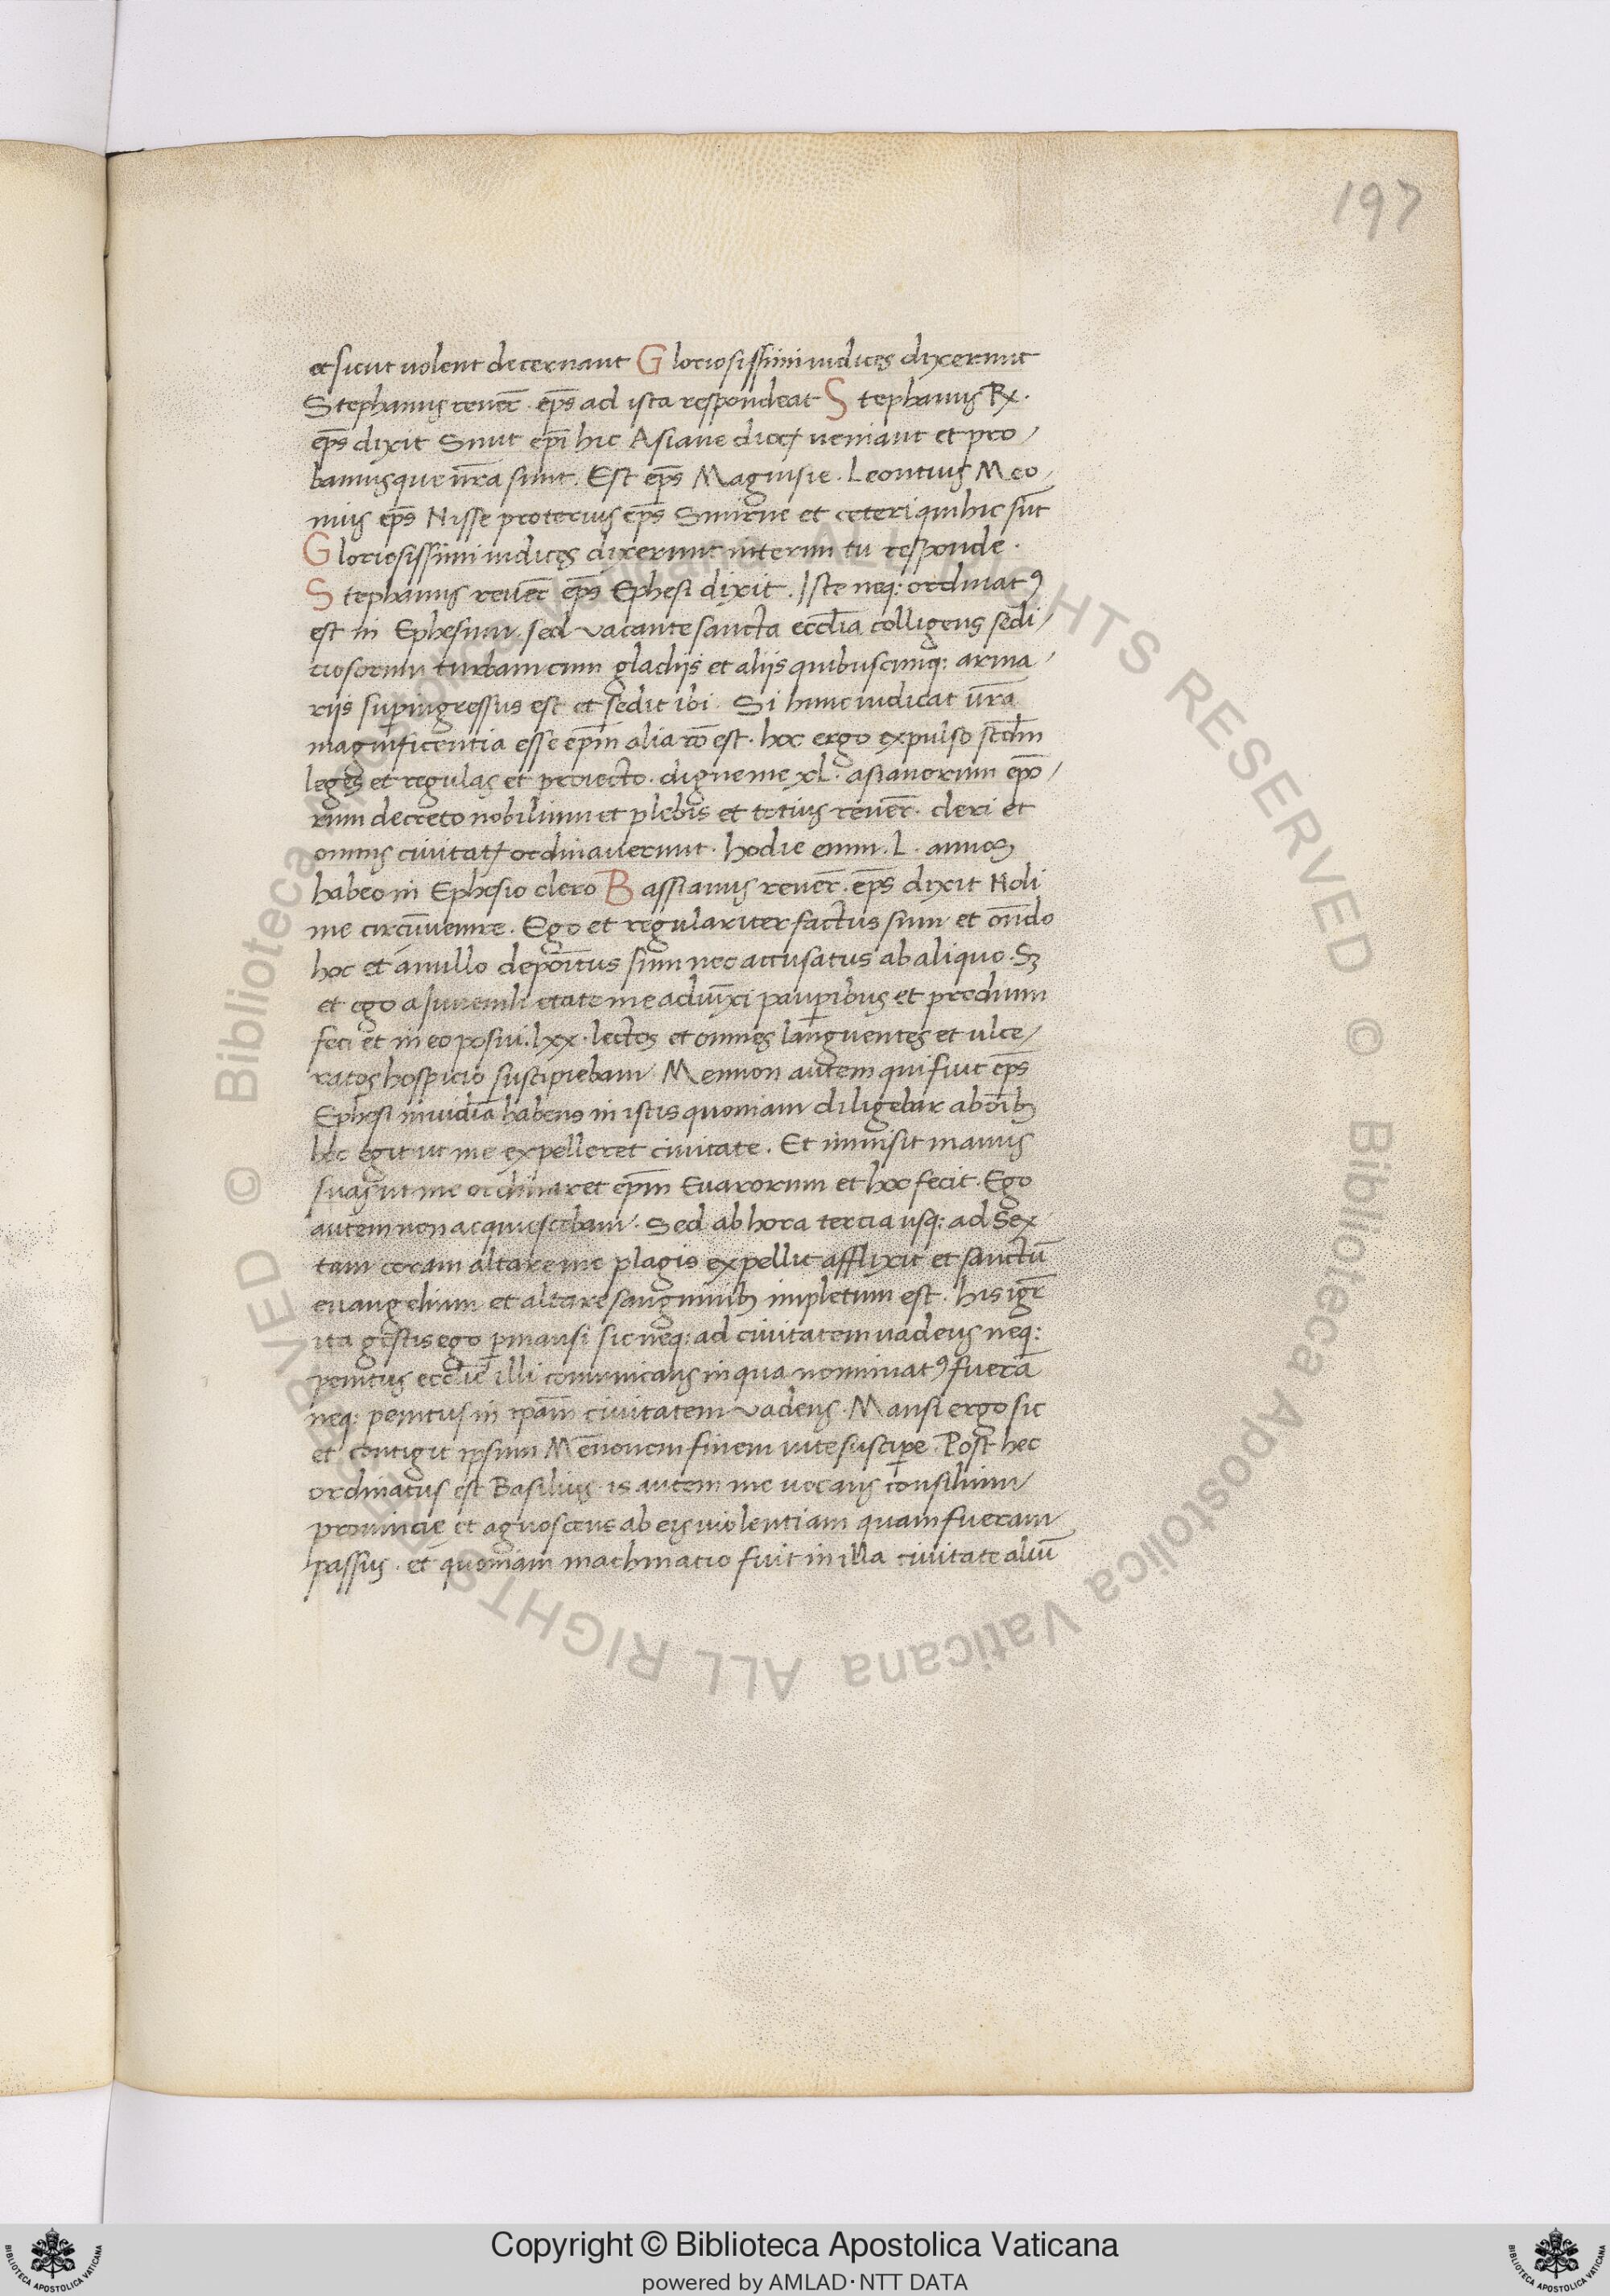 197
et sicut uolent decernant Gloriosissimi iudices dixerunt
Stephanus reuer̄. ep̄s ad ista respondeat Stephanus Rx.
ep̄s dixit Sunt ep̄i hic Asiane dioc̨ ueniant et pro/
bamus que ur̄a sunt. Est ep̄s Magnisie. Leontius Meo/
nius ep̄s Nisse proterius ep̄s Smirne et ceteri qui hic sūt
Gloriosissimi iudices dixerunt interim tu responde.
Stephanus reuer̄ ep̄s Ephesi dixit. Iste neq: ordinatꝰ
est in Ephesum. sed vacante sancta eccl̄ia colligens sedi/
ciosorum turbam cum gladijs et aliis quibuscunq: arma/
riis suꝑingressus est et sedit ibi. Si hunc iudicat ur̄a
magnificentia esse ep̄m alia rō est. hoc ergo expulso scd̄m
leges et regulas et proiecto. digne me xL. asianorum epō/
rum decreto nobilium et plebis et totius reuer̄. cleri et
omnis ciuitatꝭ ordinauerunt. hodie enim .L. annos
habeo in Ephesio clero Bassianus reuer̄. ep̄s dixit Noli
me circūuenire. Ego et regulariter factus sum et ōndo
hoc et a nullo depoītus sum nec accusatus ab aliquo. Sꝫ
et ego a Iuuenili etate me aduīxi pauꝑibus et predium
feci et in eo posui .lxx. lectos et omnes languentes et ulce/
ratos hospicio suscipiebam. Memnon autem qui fuit ep̄s
Ephesi inuidiā habens in istis quoniam diligebar ab oībꝫ
hec egit ut me expelleret ciuitate. Et inmisit manus
suas ut me ordinaret ep̄m Euarorum et hoc fecit. Ego
autem non acquiescebam. Sed ab hora tercia usq: ad Sex
tam coram altare me plagis expellit afflixit et sanctū
euangelium et altare sanguinibꝫ impletum est. his igr̄
ita gestis ego ꝑmansi sic neq: ad ciuitatem uadens neq:
penitus eccl̄ie illi comunicans in qua nominatꝰ fuerā
neq: penitus in ip̄am ciuitatem vadens. Mansi ergo sic
et contigit ipsum Mēnonem finem uite susciꝑe. Post hec
ordinatus est Basilius. is autem me uocans consilium
prouincie et agnoscens ab eis uiolentiam quam fueram
passus. et quoniam machinatio fuit in illa ciuitate aliū
© Biblioteca Apostolica Vaticana ALL RIGHTS RESERVED © Biblioteca Apostolica Vaticana ALL RIGHTS RESERVED
Copyright © Biblioteca Apostolica Vaticana
powered by AMLAD·NTT DATA
BIBLIOTECA APOSTOLICA VATICANA
BIBLIOTECA APOSTOLICA VATICANA